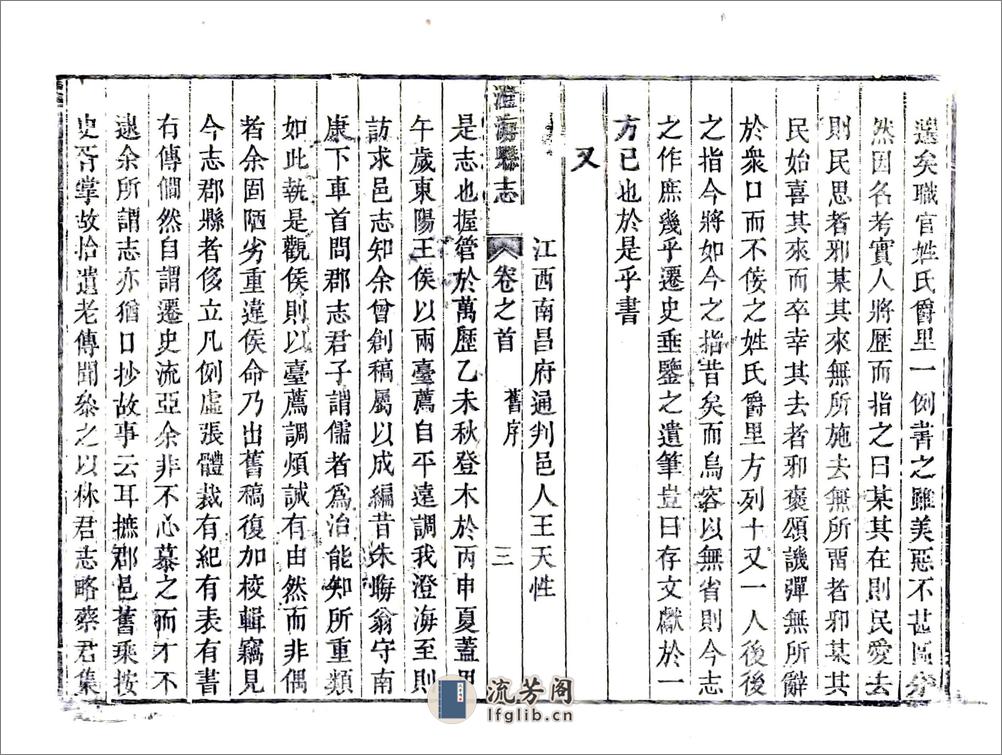 遠矣職官姓氏爵里一例書之雖美惡不甚區分
然因名考實人將歷而指之曰某其在則民愛去
則民思者邪某其來無所施去無所畱者邪某其
民始喜其來而卒幸其去者邪褒頌譏彈無所辭
於衆口而不佞之姓氏爵里方列十又一人後後
之指今將如今之指昔矣而烏容以無省則今志
之作庶幾乎遷史垂鑒之遺筆豈曰存文獻於一
方已也於是乎書
又
江西南昌府通判邑人王天性
澄海縣志
卷之首
舊序
三
是志也握管於萬歷乙未秋登木於丙申夏蓋
午歲東陽王侯以兩臺薦自平遠調我澄海至則
訪求邑志知余曾創稿屬以成編昔朱晦翁守南
康下車首問郡志君子謂儒者爲治能知所重類
如此執是觀侯則以臺薦調煩誠有由然而非偶
者余固陋劣重違侯命乃出舊稿復加校輯竊見
今志郡縣者侈立凡例虛張體裁有紀有表有書
有傳僩然自謂遷史流亞余非不心慕之而才不
逮余所謂志亦猶口抄故事云耳摭郡邑舊乘按
史胥掌故拾遺老傳聞叅之以林君志略蔡君集
流芳阁
lfglib.cn